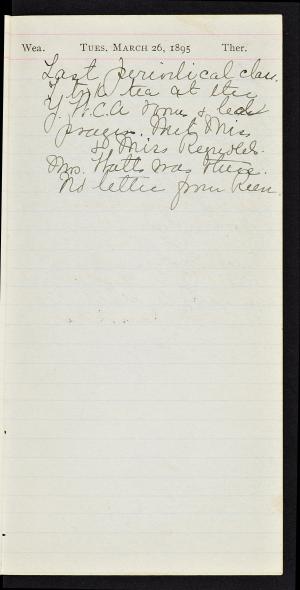 Wea. TUES. MARCH 26, 1895 Ther.
Last periodical class.
I took tea at the
Y.W.C.A rooms & lead
prayers. Met Miss
& Miss Reynolds.
Mrs. Watts was there.
No letter from Keen.